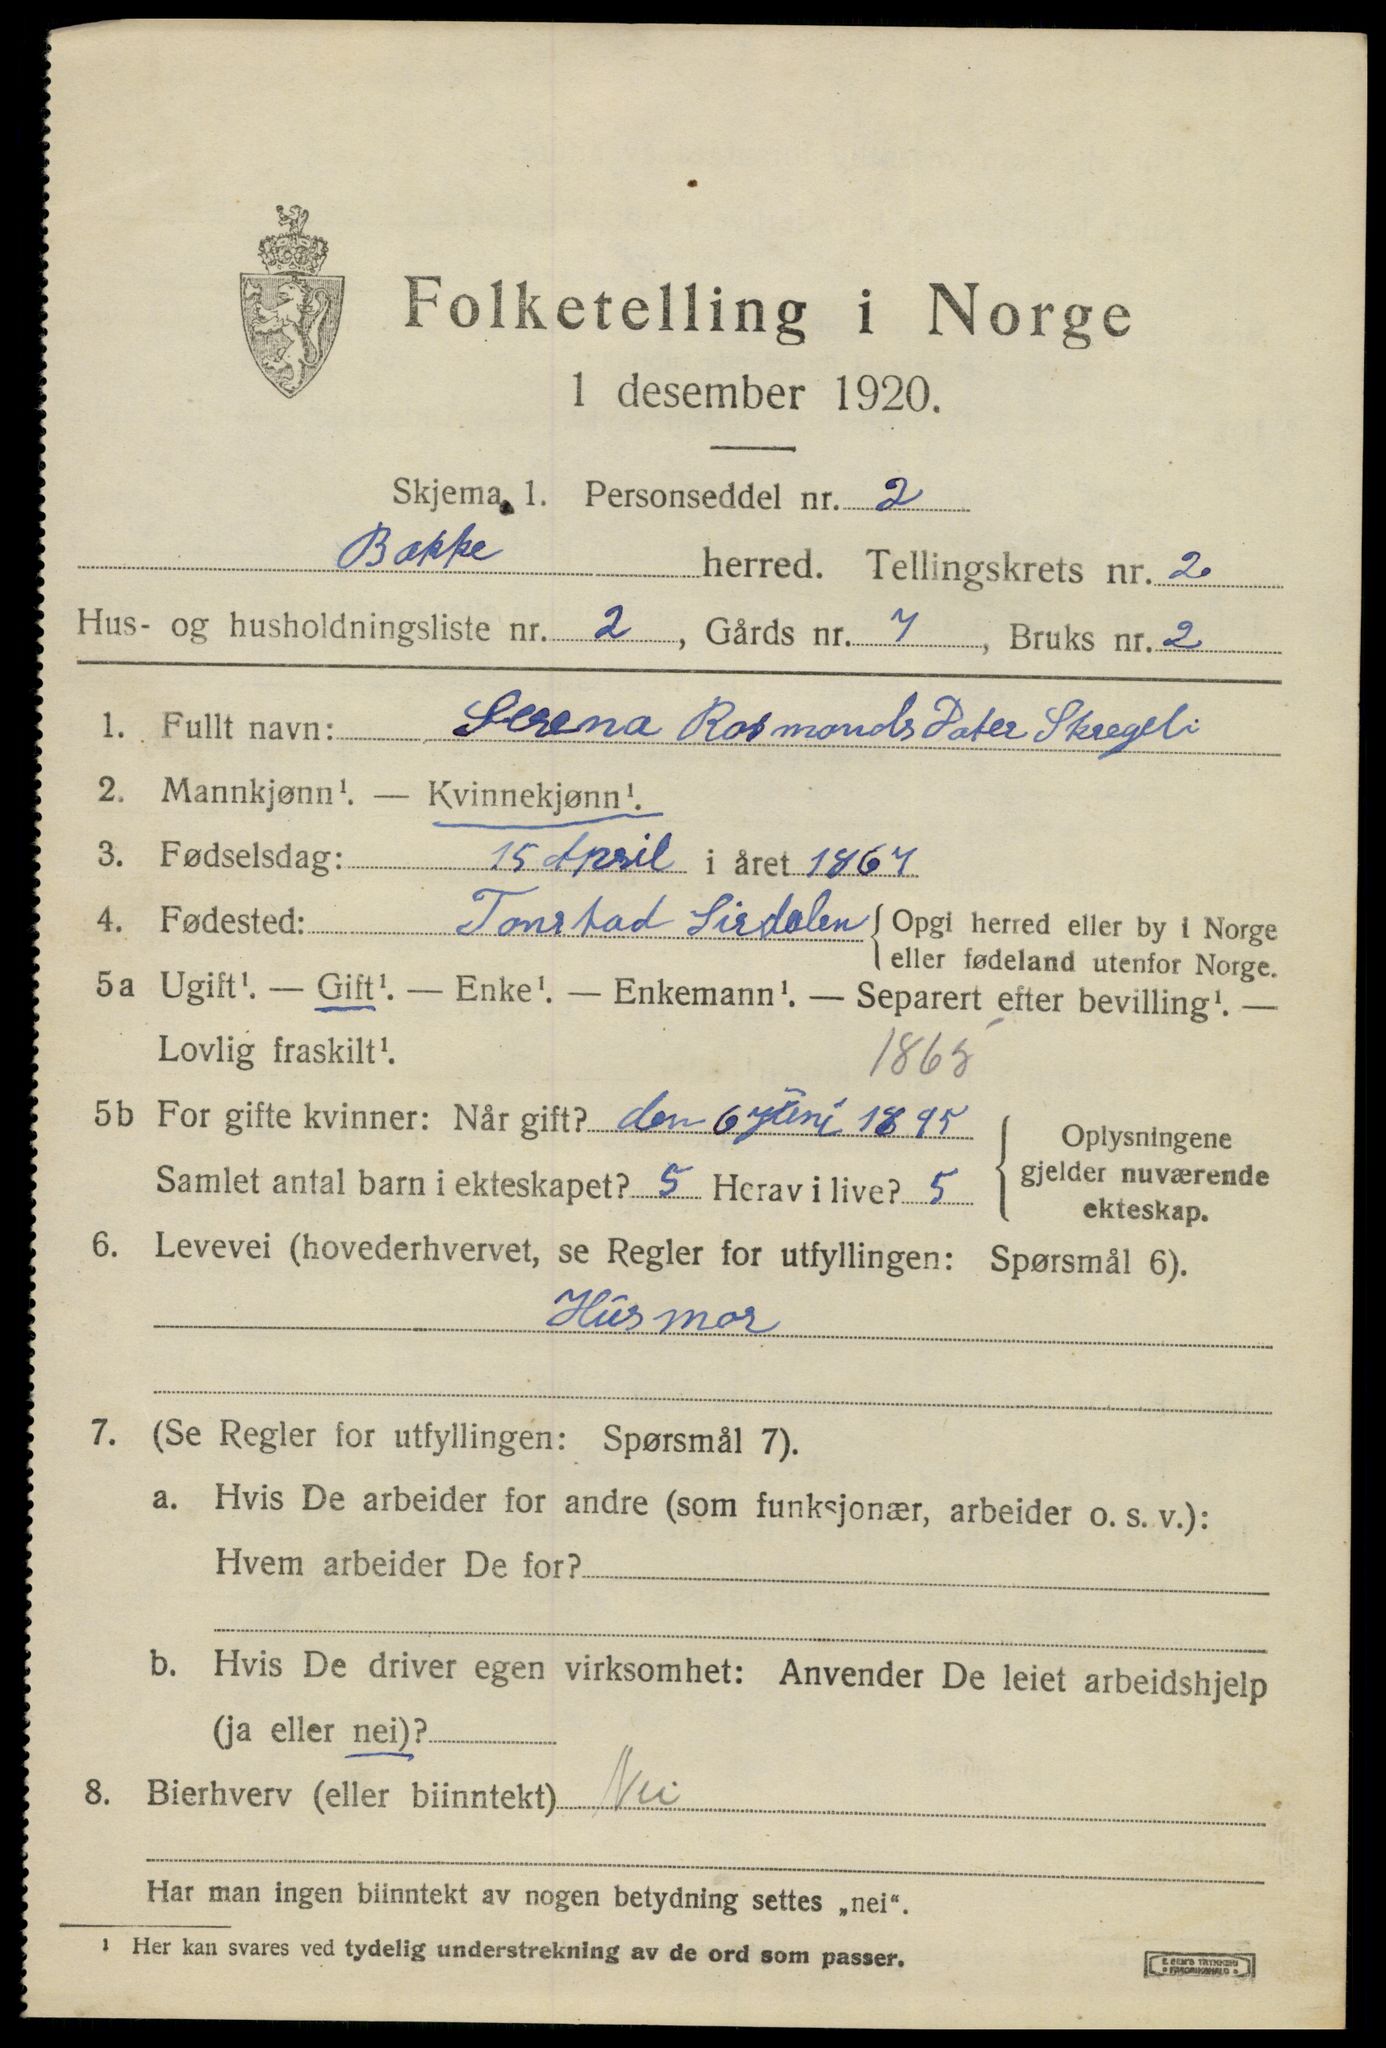 Folketelling i Norge
1 desember 1920.
Skjema 1. Personseddel nr. 2
Bakke herred. Tellingskrets nr. 2
Hus- og husholdningsliste nr. 2, Gårds nr. 7, Bruks nr. 2
1. Fullt navn: Serena Rasmonds Dater Skregeli
2. Mannkjønn¹. — Kvinnekjønn¹.
3. Fødselsdag: 15 April i året 1867
4. Fødested: Tonstad Sirdalen { Opgi herred eller by i Norge
eller fødeland utenfor Norge.
5a Ugift¹. — Gift¹. — Enke¹. — Enkemann¹. — Separert efter bevilling¹. —
Lovlig fraskilt¹.
1865
5b For gifte kvinner: Når gift? den 6 Juni 1895
Samlet antal barn i ekteskapet? 5 Herav i live? 5
{ Oplysningene
gjelder nuværende
ekteskap.
6. Levevei (hovederhvervet, se Regler for utfyllingen: Spørsmål 6).
Husmor
7. (Se Regler for utfyllingen: Spørsmål 7).
a. Hvis De arbeider for andre (som funksjonær, arbeider o. s. v.):
Hvem arbeider De for?
b. Hvis De driver egen virksomhet: Anvender De leiet arbeidshjelp
(ja eller nei)?
8. Bierhverv (eller biinntekt) Nei
Har man ingen biinntekt av nogen betydning settes „nei“.
¹ Her kan svares ved tydelig understrekning av de ord som passer.
E. SEM'S TRYKKERI
• FREDRIKSHALD •